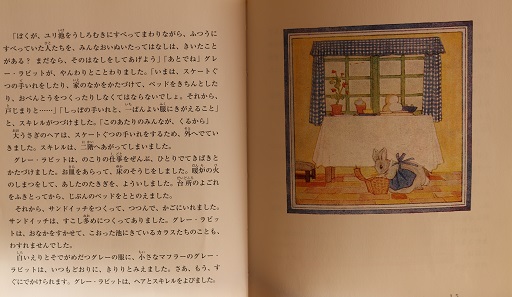 「ぼくが、スリ池をうしろむきにすべってまわりながら、ふつうに
すべっていた人たちを、みんなおいぬいたってはなしは、きいたこと
がある? まだなら、そのはなしをしてあげよう」「あとでね」グレ
ー・ラビットが、やんわりとことわりました。「いまは、スケートぐ
つの手いれをしたり、家のなかをかたづけて、ベッドをきちんとした
り、おべんとうをつくったりしなくてはならないでしょ。それから、
戸じまりと……」「しっぽの手いれと、一ばんよい服にきがえること」
と、スキレルがつづけました。「このあたりのみんなが、くるから」
大うさぎのヘアは、スケートぐつの手いれをするため、外へでてい
きました。スキレルは、二階へあがってしまいました。
グレー・ラビットは、のこりの仕事をぜんぶ、ひとりでてきぱきと
かたづけました。お皿をあらって、床のそうじをしました。暖炉の火
のしまつをして、あしたのたきぎを、よういしました。台所のよごれ
をふきとってから、じぶんのベッドをととのえました。
それから、サンドイッチをつくって、つつんで、かごにいれました。
サンドイッチは、すこし多めにつくってありました。グレー・ラビット
は、おなかをすかせて、こおった池にきているカラスたちのことも、
わすれませんでした。
白いえりとそでがめだつグレーの服に、小さなマフラーのグレー・
ラビットは、いつもどおりに、きりりとみえました。さあ、もう、す
ぐにでかけられます。グレー・ラビットは、ヘアとスキレルをよびました。